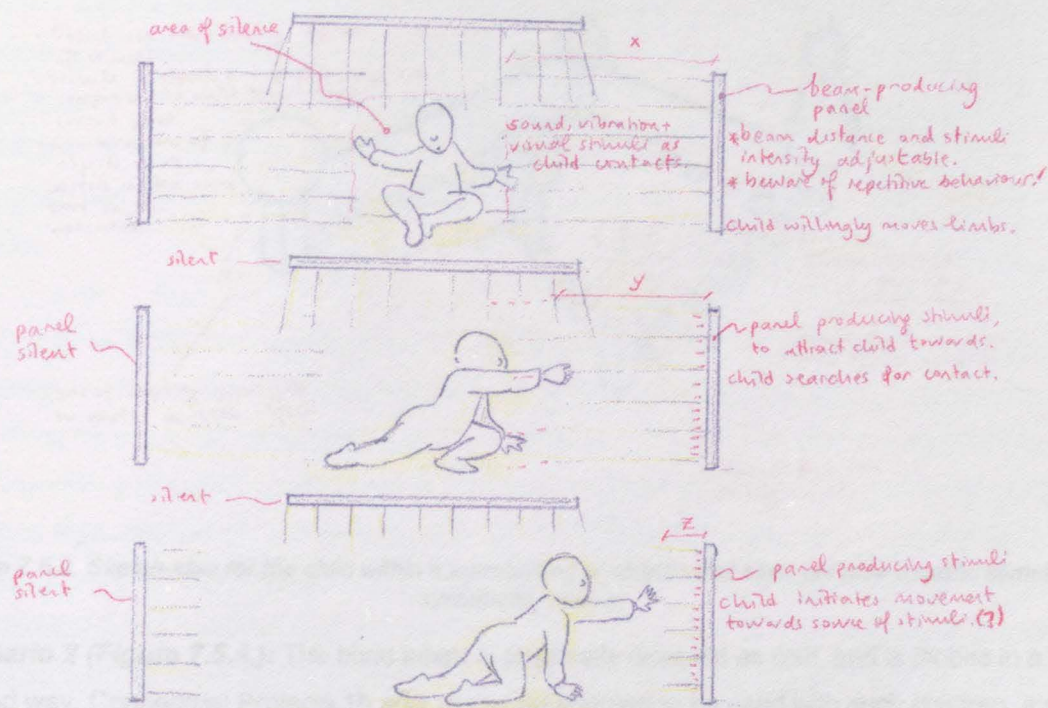 area of silence
x
beam-producing
panel
*beam distance and stimuli
intensity adjustable.
*beware of repetitive behaviour!
child willingly moves limbs.
sound, vibration +
visual stimuli as
child contacts
silent
y
panel
silent
panel producing stimuli,
to attract child towards.
child searches for contact.
silent
z
panel
silent
panel producing stimuli
child initiates movement
towards source of stimuli.(?)